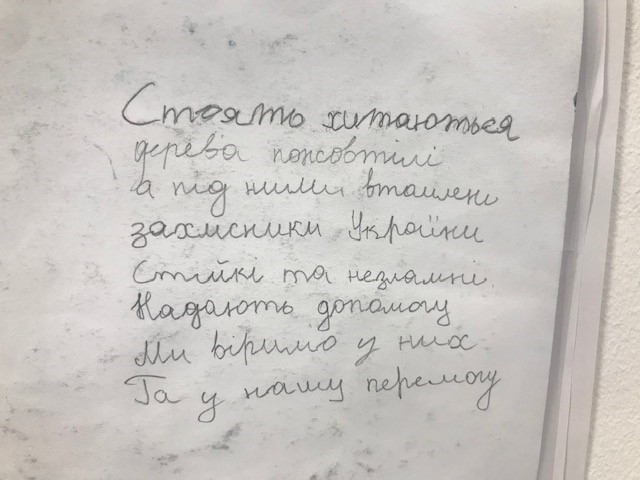 Стоять хитаються
дерева пожовтілі
а під ними втомлені
захисники України
Стійкі та незламні.
Надають допомогу
Ми віримо у них
Та у нашу перемогу